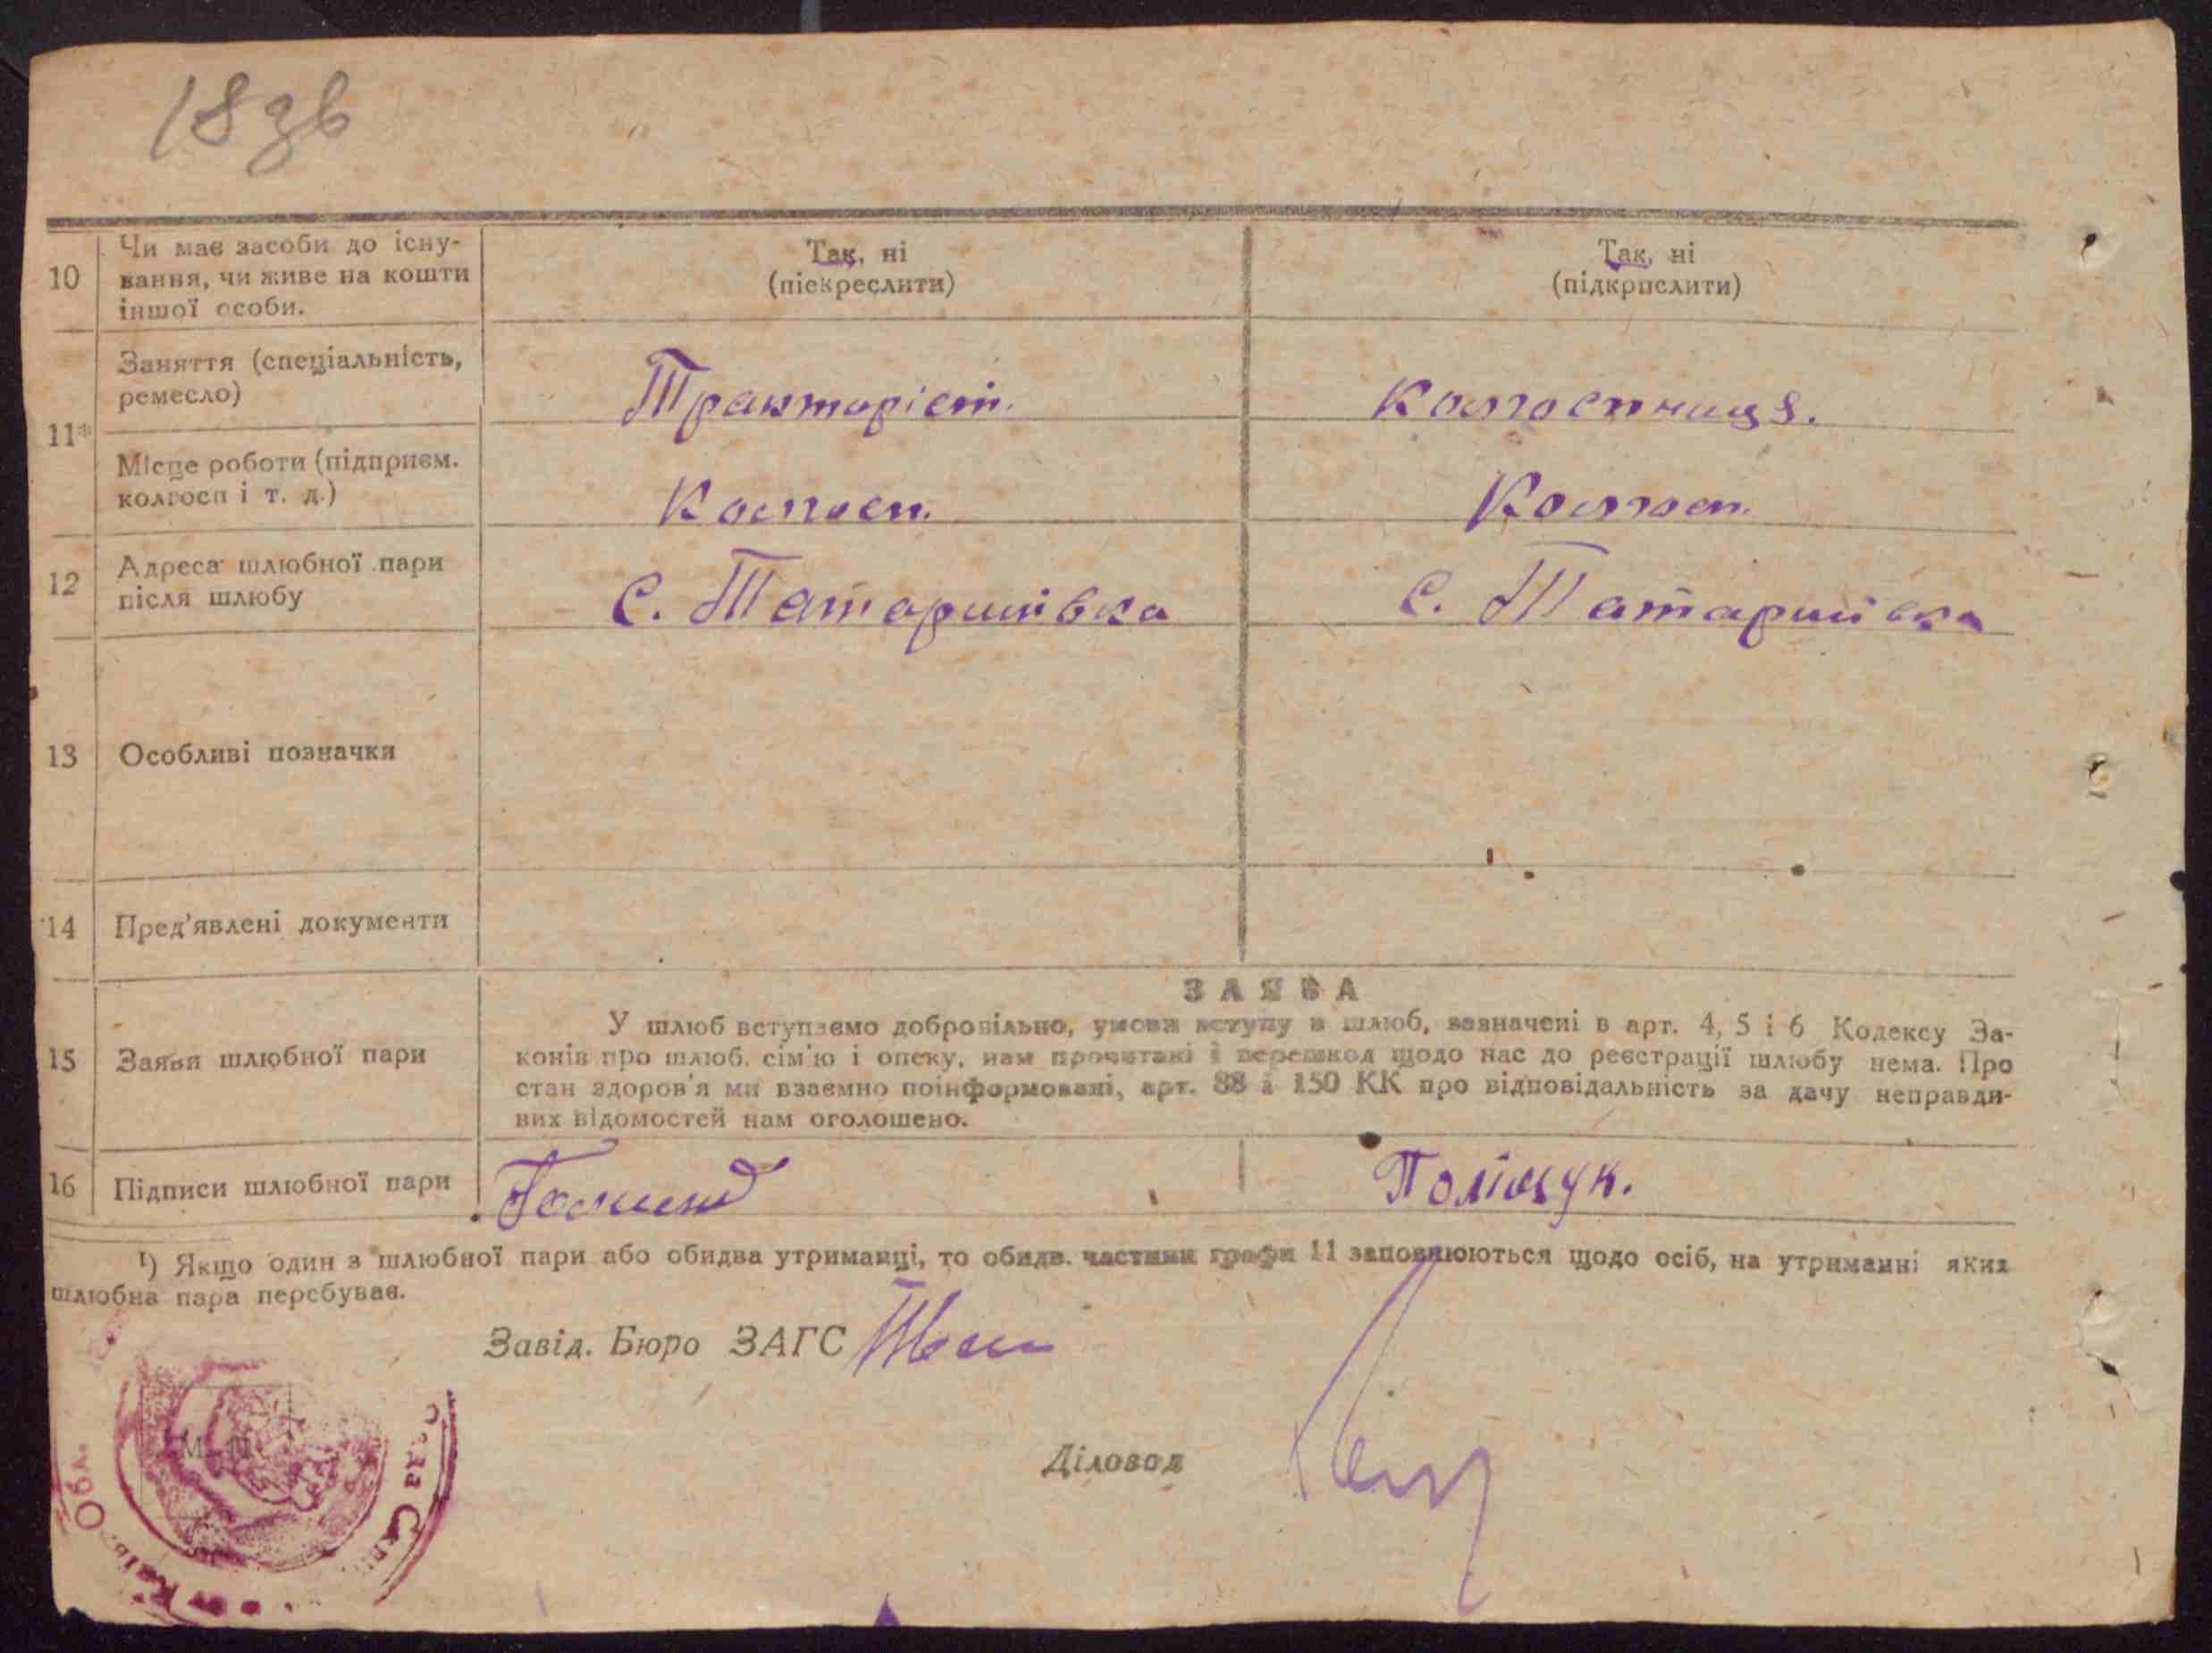 18зв
10
Чи має засоби до існу-
вання, чи живе на кошти
іншої особи.
Так, ні
(піекреслити)
Так, ні
(підкрпслити)
11*
Заняття (спеціальність,
ремесло)
Тракторіст.
Колгоспниця.
Місце роботи (підприєм.
колгосп і т. д.)
Колгосп.
Колгосп.
12
Адреса шлюбної пари
після шлюбу
с. Татаринівка
с. Татаринівка
13
Особливі позначки
14
Пред'явлені документи
ЗАЯВА
15
Заява шлюбної пари
У шлюб вступаємо добровільно, умови вступу в шлюб, зазначені в арт. 4, 5 і 6 Кодексу За-
конів про шлюб, сім'ю і опеку, нам прочитані і перешкод щодо нас до реєстрації шлюбу нема. Про
стан здоров'я ми взаємно поінформовані, арт. 88 і 150 КК про відповідальність за дачу неправди-
вих відомостей нам оголошено.
16
Підписи шлюбної пари
Поліщук.
¹) Якщо один з шлюбної пари або обидва утриманці, то обидв. частини графи 11 заповнюються щодо осіб, на утриманні яких
шлюбна пара перебуває.
Завід. Бюро ЗАГС
М. П.
Діловод
Обл.